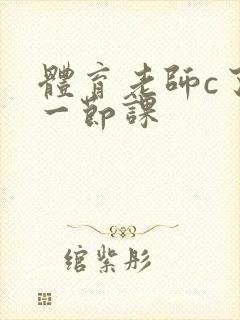 體育老師c了
一節課
綰紫彤